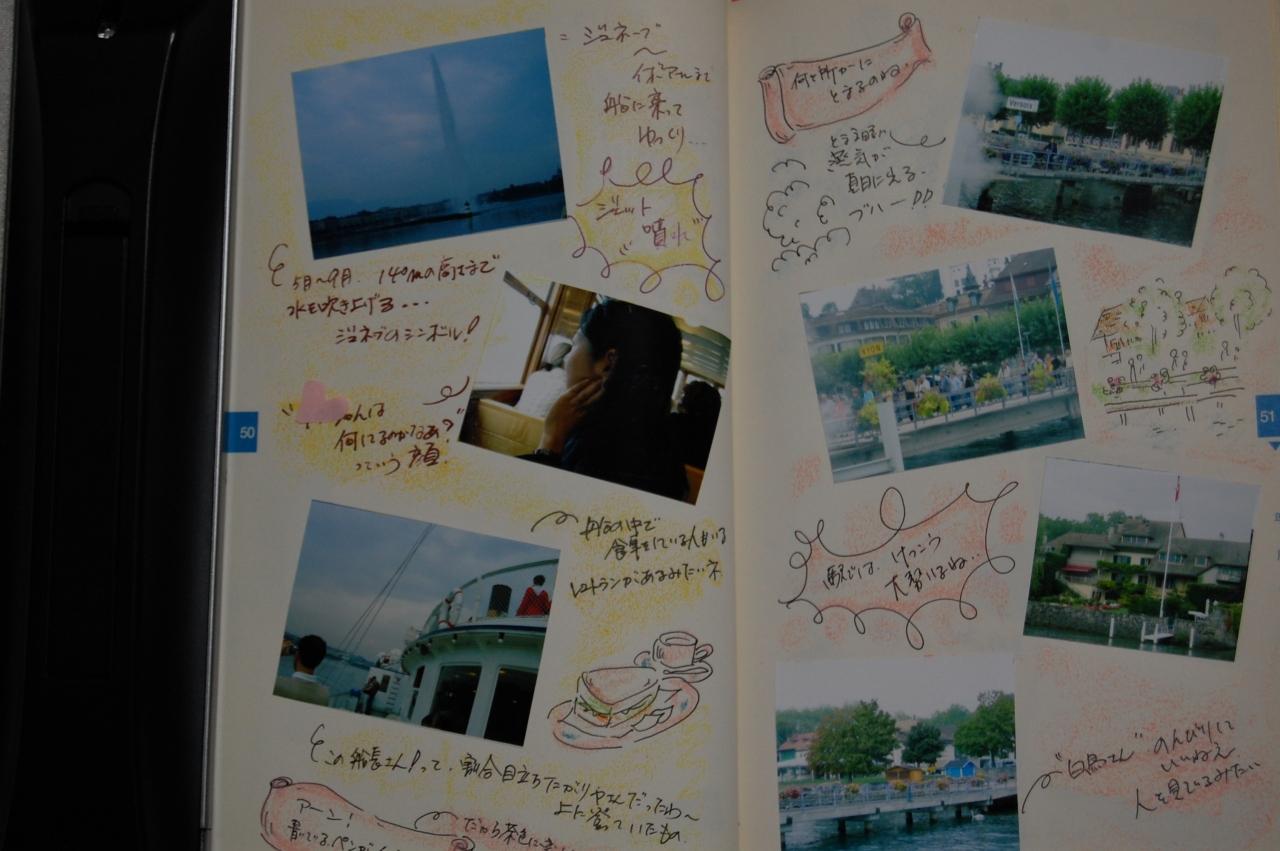 = ジュネーブ
〜
イボアールまで
船に乗って
ゆっくり...
ジェット
噴水
5月〜9月、140mの高さまで
水を吹き上げる...
ジュネブのシンボル!
ゃんは
何してるのかなあ?
っていう顔。
50
船の中で
食事をしている人もいる
レストランがあるみたいネ
この船長さん!って、割合目立ちたがりやさんだったわ〜
上に登っていたもの
アーン!
だから茶色に
何ヶ所かに
とまるのね..
とまる時に
蒸気が
真白に出る。
ブハー!!
Versoix
NYON
51
駅では、けっこう
大勢いるね..
"白鳥さん" のんびりして
いいねえ
人を見てるみたい